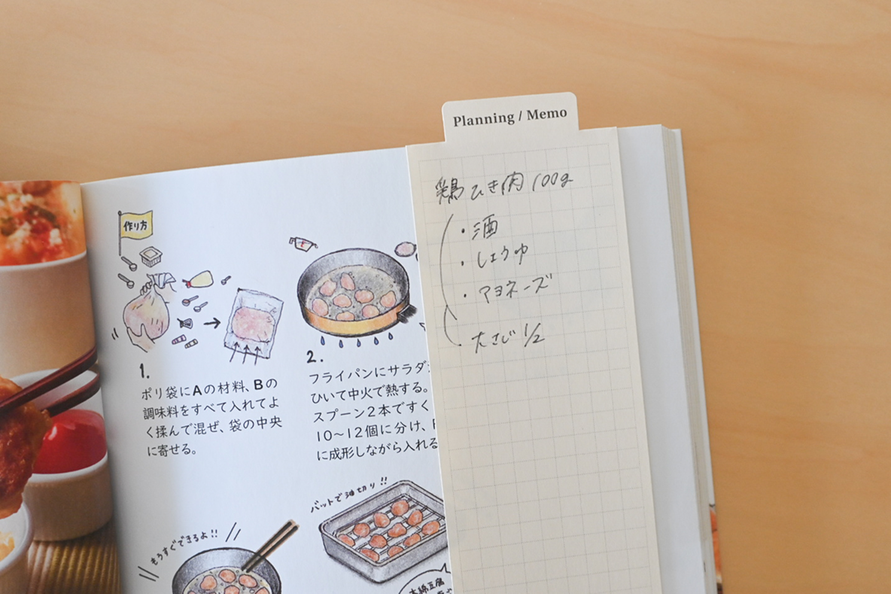 Planning / Memo
鶏ひき肉 100g
・酒
・しょうゆ
・マヨネーズ
大さじ 1/2
作り方
1.
ポリ袋にAの材料、Bの
調味料をすべて入れてよ
く揉んで混ぜ、袋の中央
に寄せる。
2.
フライパンにサラダ
ひいて中火で熱する。
スプーン2本ですく
10〜12個に分け、
に成形しながら入れる
もうすぐできるよ!!
バットで油切り!!
木綿豆腐